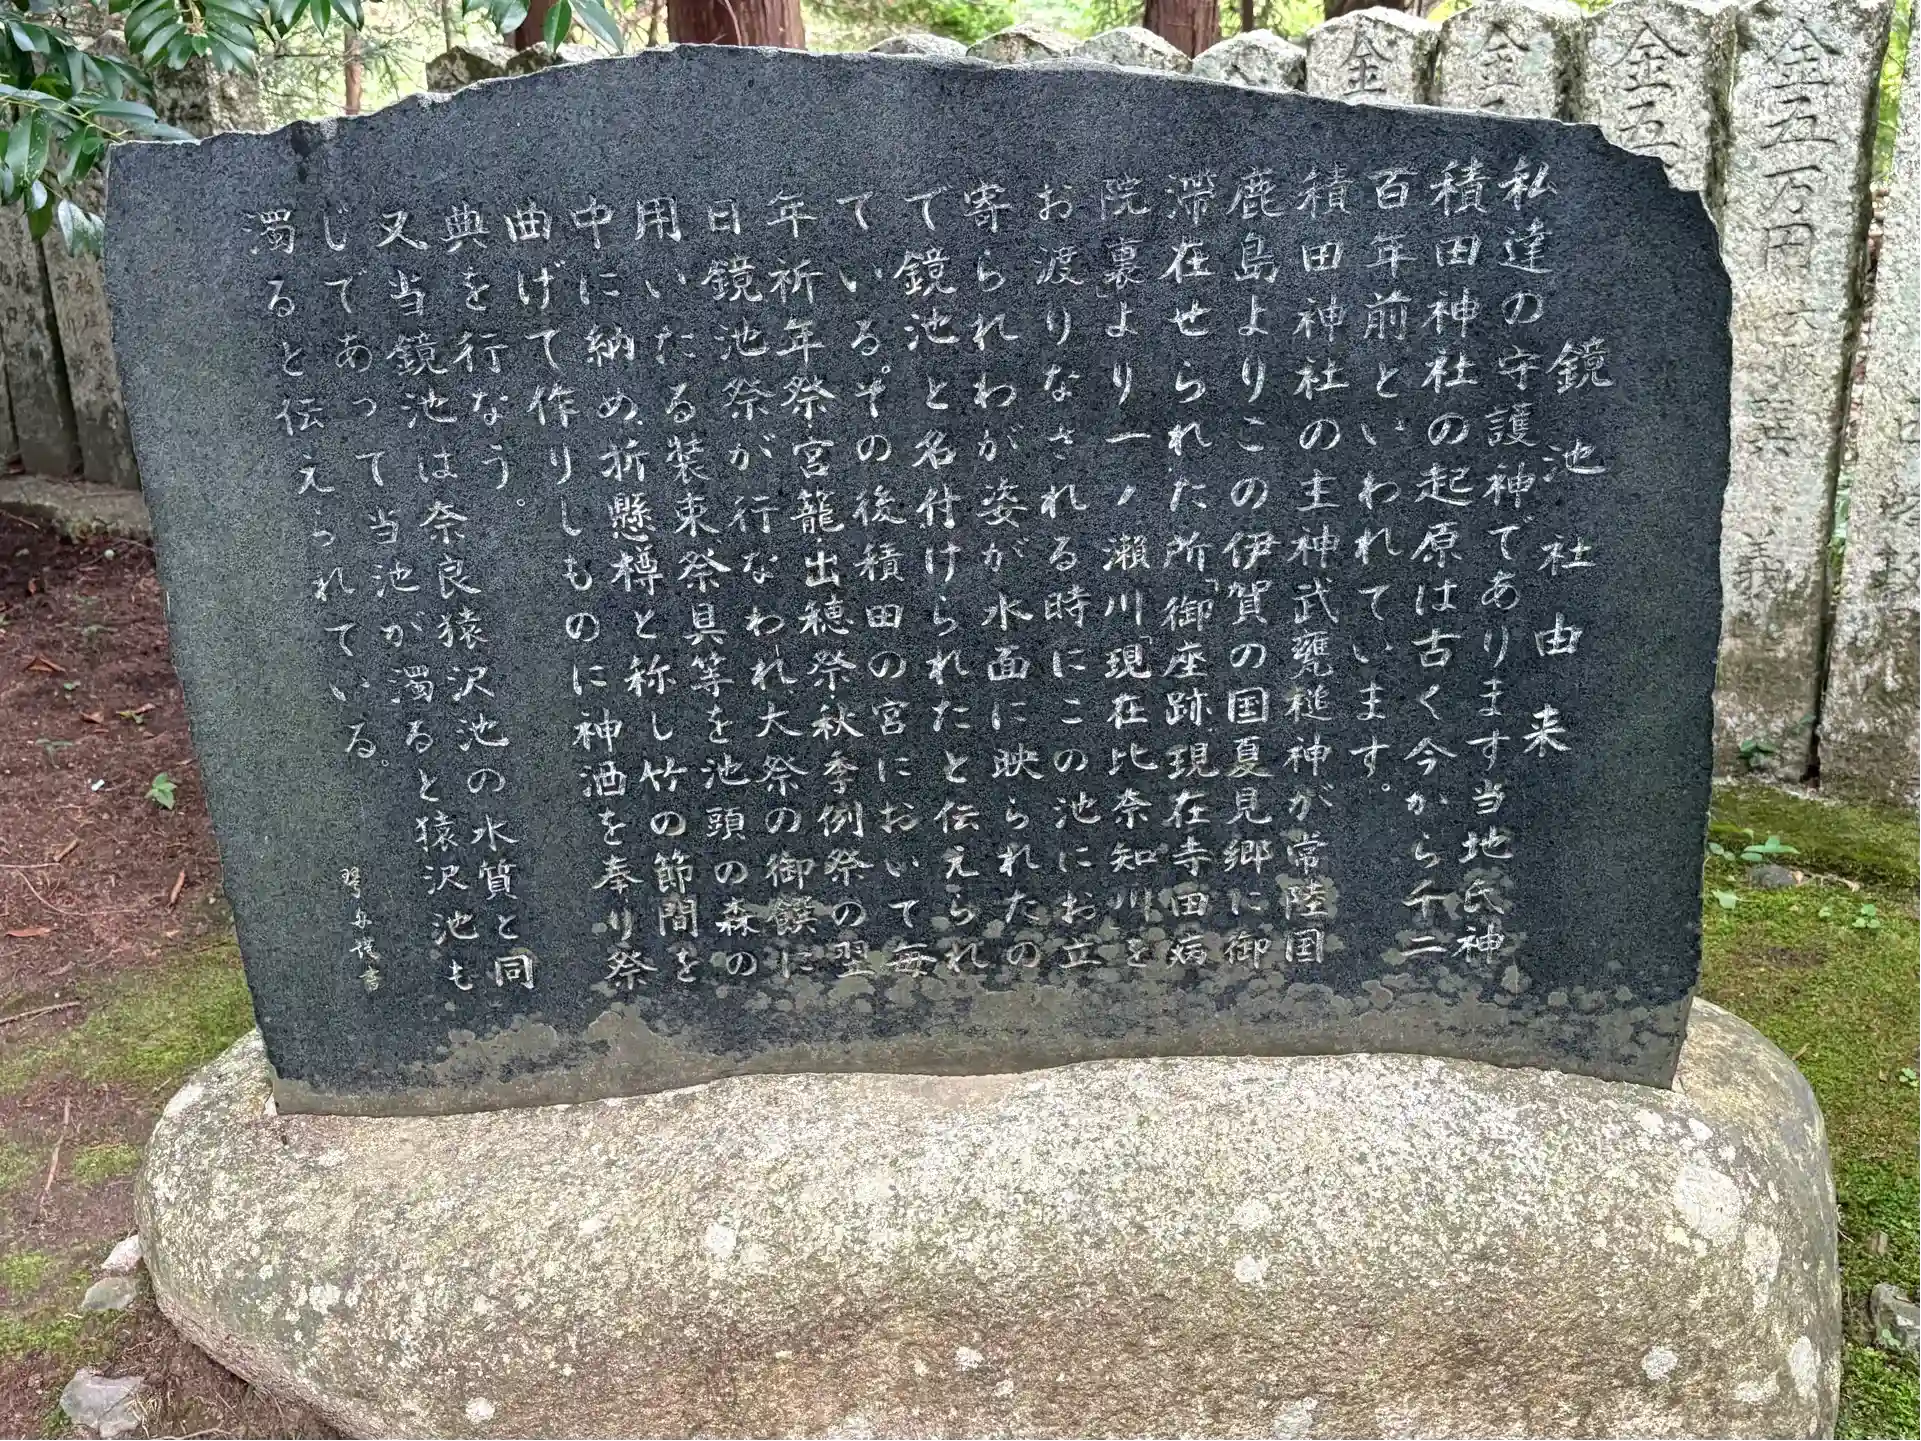 鏡池社由来
私達の守護神であります当地氏神
積田神社の起原は古く今から千二
百年前といわれています。
積田神社の主神武甕槌神が常陸国
鹿島よりこの伊賀の国夏見郷に御
滞在せられた所「御座跡、現在寺田病
院裏」より一ノ瀬川「現在比奈知川」を
お渡りなされる時にこの池にお立
寄られわが姿が水面に映られたの
で鏡池と名付けられたと伝えられ
ている。その後積田の宮において毎
年祈年祭・宮籠・出穂祭・秋季例祭の翌
日鏡池祭が行なわれ、大祭の御饌に
用いたる装束、祭具等を池頭の森の
中に納め、折懸樽と称し竹の節間を
曲げて作りしものに神酒を奉り祭
典を行なう。
又当鏡池は奈良猿沢池の水質と同
じであって当池が濁ると猿沢池も
濁ると伝えられている。
謹書
金
金五
金五
金五万円